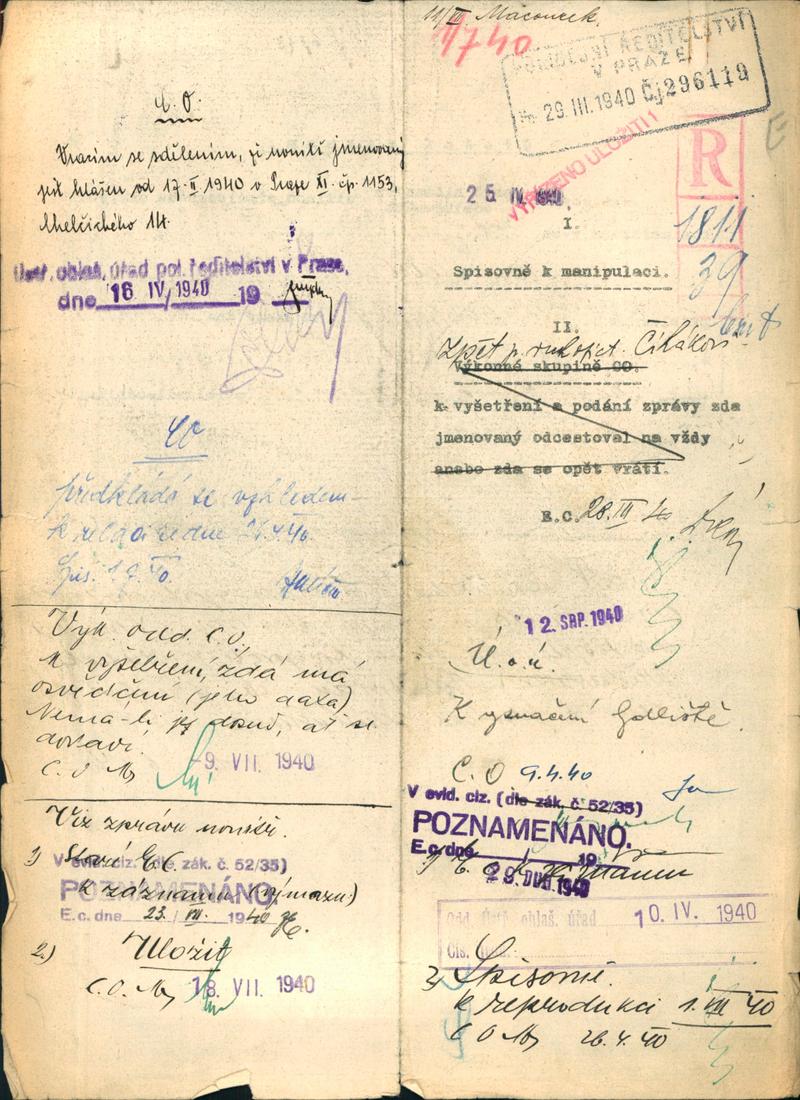 C.O.
Vracím se sdělením, že nonití jmenovaný
jest hlášen od 17.II.1940 v Praze XI. čp. 1153,
Chelčického 14.
Ústř. ohlaš. úřad pol. ředitelství v Praze,
dne 16 IV 1940 19
CO
předkládá se vzhledem
k relaci ze dne
Spis. 1.7.40.
Výk. odd. C.O.
k vyšetření, zda má
osvědčení (jeho data)
Nemá-li jej dosud, ať si
C.O.
-9. VII. 1940
Viz zprávu
1) E.C.
V evid. ciz. (dle zák. č. 52/35)
POZNAMENÁNO
k záznamu (výmazu)
E.c. dne 23. VII. 1940
2.) Uložit
C.O.
18. VII. 1940
11/III Macoucek.
1/7 40
POLICEJNÍ ŘEDITELSTVÍ
V PRAZE
29.III.1940 Čj 296119
VYŘÍZENO ULOŽITI!
R
25 IV. 1940.
1811
39
I.
Spisovně k manipulaci.
II.
Zpět p. Cihákovi
Výkonné skupině CO.
k vyšetření a podání zprávy zda
jmenovaný odcestoval na vždy
anebo zda se opět vrátí.
E.C. 28.III 40
12. SRP. 1940
Ú.o.ú.
K vyznačení bydliště.
C.O 9.4.40
V evid. ciz. (dle zák. č. 52/35)
POZNAMENÁNO.
E.c. dne 19
29. DUB. 1940
1) E.C. K
Odd. Ústř. ohlaš. úřad 10. IV. 1940
Čís.
2) Spisovně.
k reprodukci 1.VII 40
C.O. 26.4.40